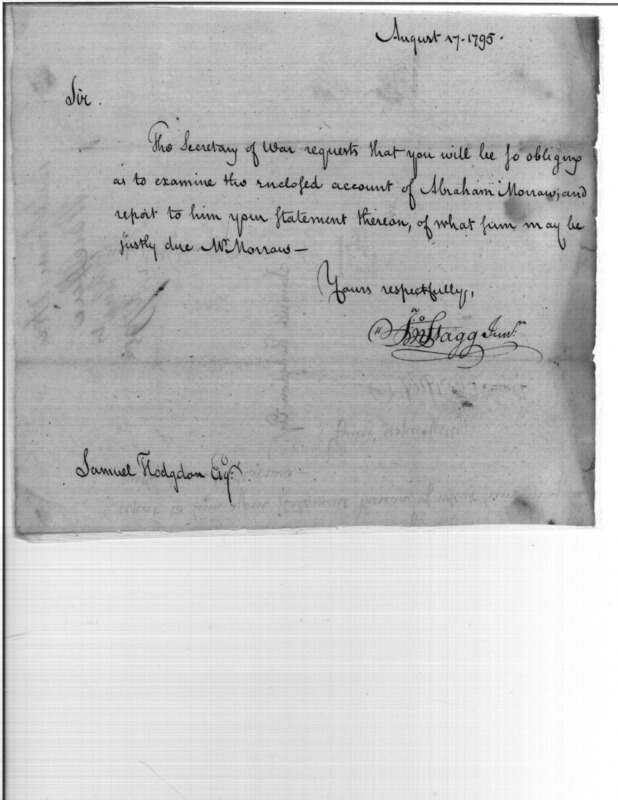 August 17. 1795.
Sir.
The Secretary of War requests that you will be so obliging
as to examine the enclosed account of Abraham Morraw, and
report to him your statement thereon, of what sum may be
justly due Mr. Morraw—
Yours respectfully,
Jno Stagg Junr.
Samuel Hodgdon Esqr.